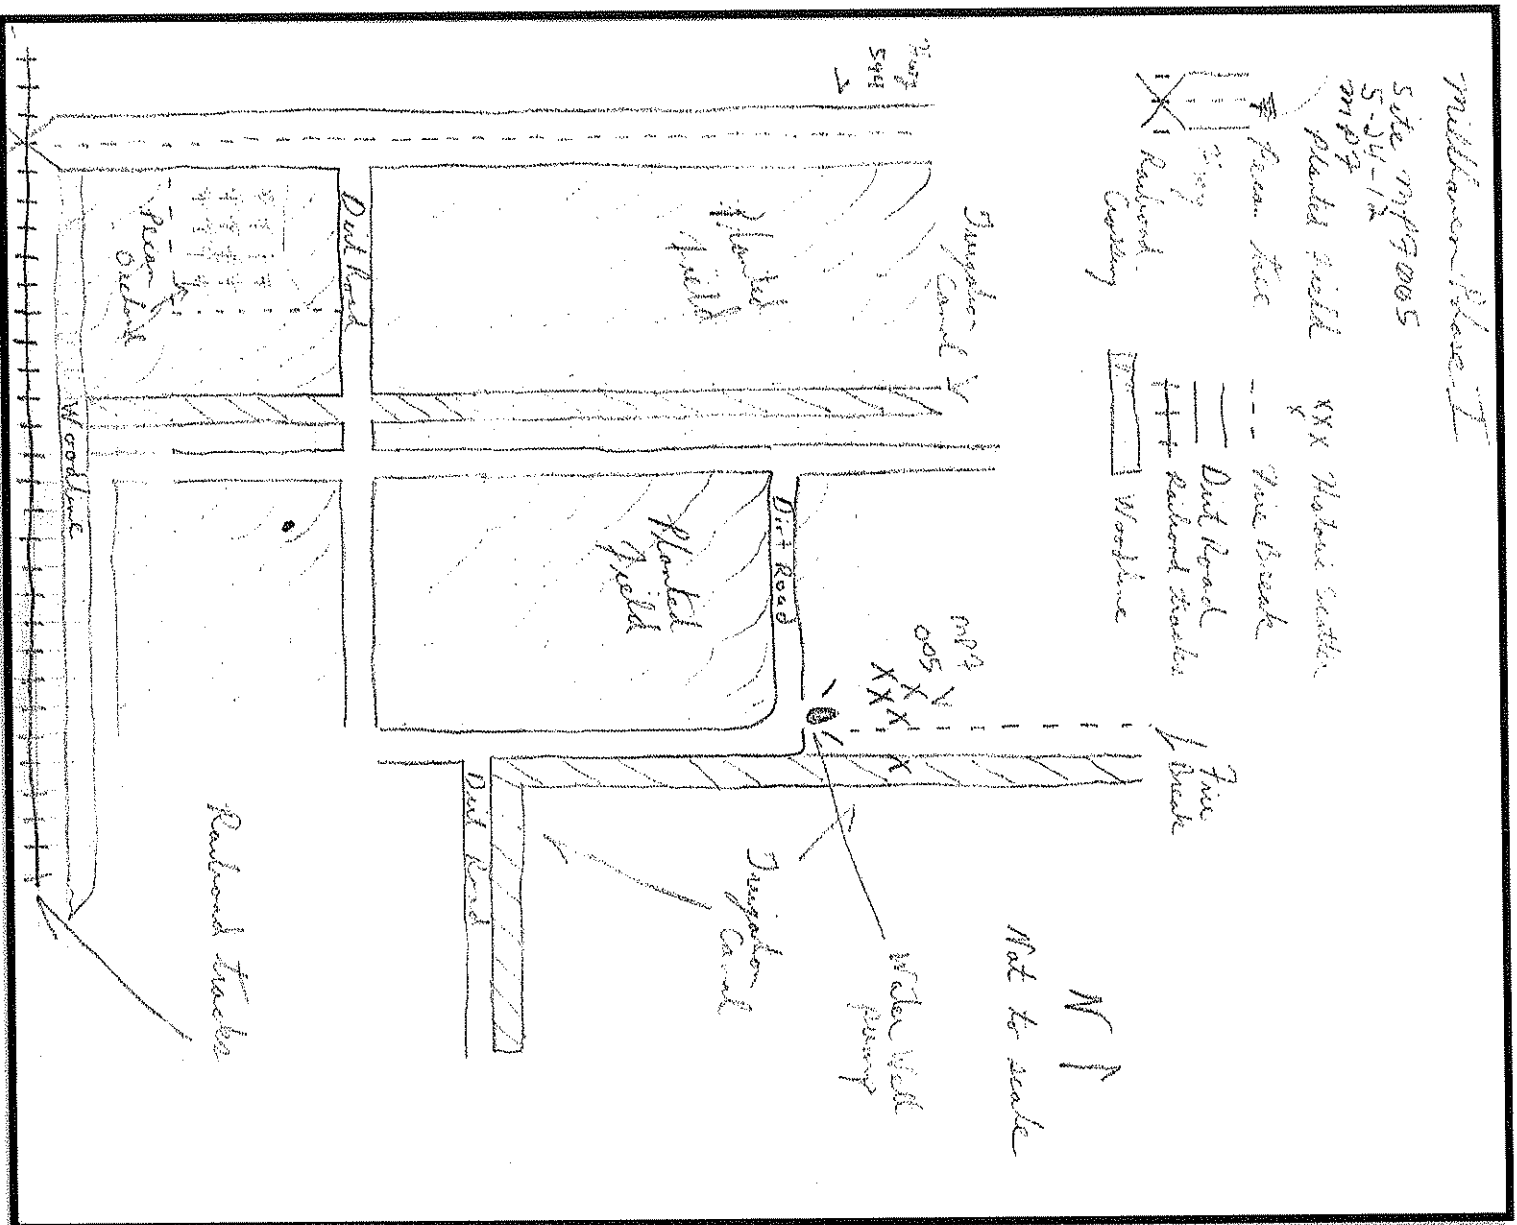 Millhaven Phase I
Site MPJ 005
5-24-12
MPJ
Planted Field
Pecan tree
Hwy
Railroad
Crossing
XXX Historic Scatter
X
--- Fire Break
Dirt Road
Railroad tracks
Woodline
Hwy
544
Irrigation
Canal
Planted
Field
Dirt Road
Pecan
Orchard
Woodline
Planted
Field
Dirt Road
005
XX
XXX
X
Fire
Break
Dirt Road
Irrigation
Canal
Water Well
pump
N
Not to scale
Railroad tracks